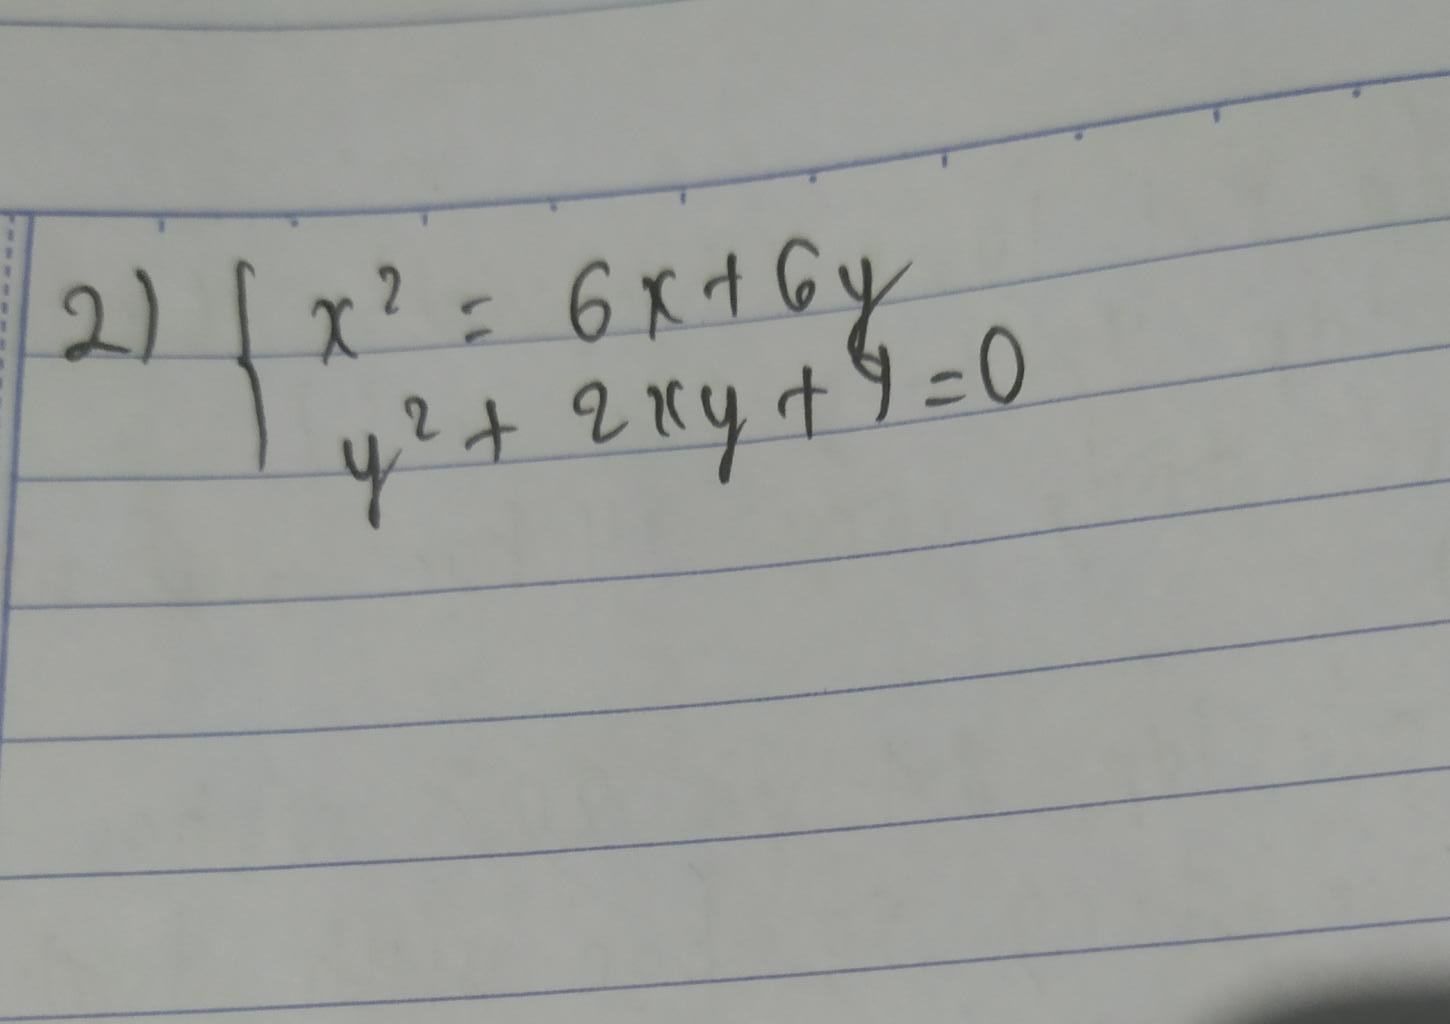 2) { x² = 6x + 6y
y² + 2xy + 9 = 0